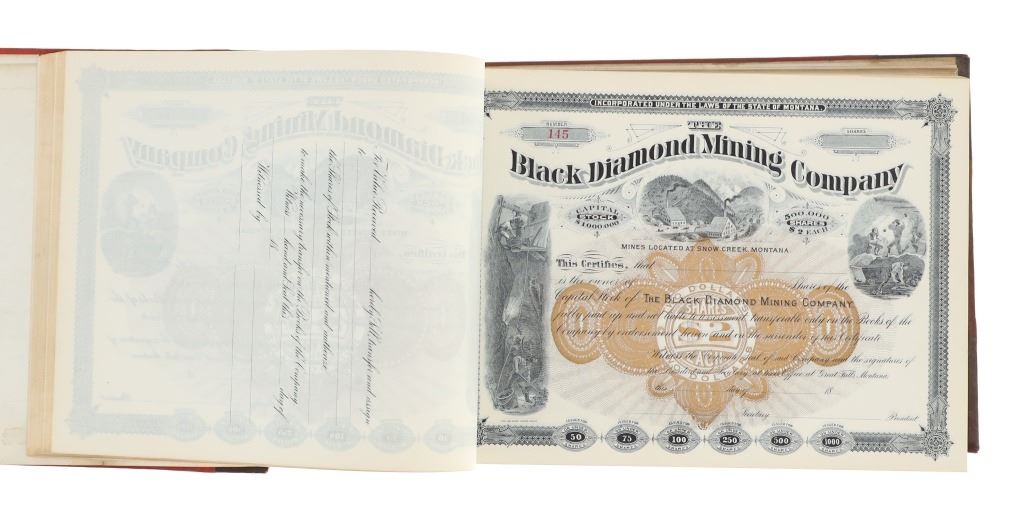 For Value Received hereby sell, transfer and assign
to
the Shares of Stock within mentioned and authorize
to make the necessary transfer on the Books of the Company
Witness hand and seal this day of
18
Witnessed by
INCORPORATED UNDER THE LAWS OF THE STATE OF MONTANA.
NUMBER
145
THE
SHARES
Black Diamond Mining Company
CAPITAL
STOCK
$1000.000
500.000
SHARES
$2 EACH
MINES LOCATED AT SNOW CREEK, MONTANA.
This Certifies, that
is the owner of Shares of the
Capital Stock of THE BLACK DIAMOND MINING COMPANY
fully paid up and not liable to assessment, transferable only on the Books of the
Company by endorsement hereon and on the surrender of this Certificate
Witness the Corporate Seal of said Company and the signatures of
the President and Secretary at their office at Great Falls, Montana
this day of 18
Secretary President
DOLLARS
SHARES
$2
EACH
50 75 100 250 500 1000